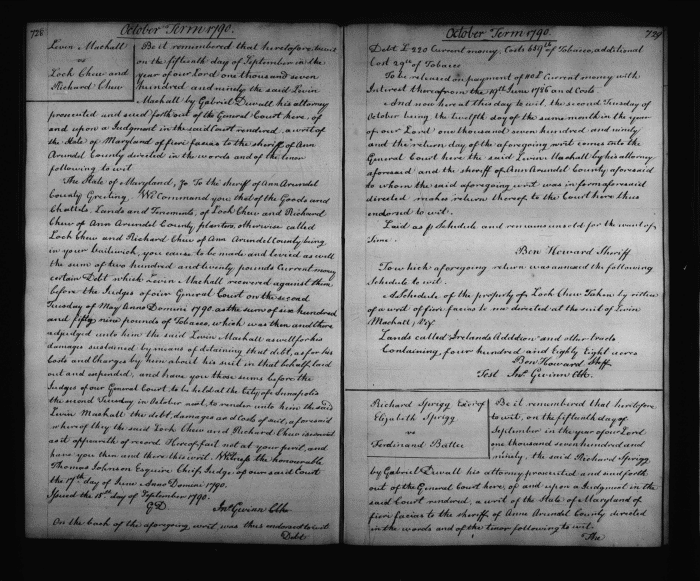 728
October Term 1790.
Levin Mackall
vs
Loch Chew and
Richard Chew
Be it remembered that heretofore to wit
on the fifteenth day of September in the
year of our Lord one thousand seven
hundred and ninety the said Levin
Mackall by Gabriel Duvall his attorney
prosecuted and sued forth out of the General Court here, of
and upon a Judgment in the said Court rendered, a writ of
the State of Maryland of fieri facias to the sheriff of Ann
Arundel County directed in the words and of the tenor
following to wit
The State of Maryland, To the sheriff of Ann Arundel
County Greeting, We Command you that of the Goods and
Chattels, Lands and Tenements, of Loch Chew and Richard
Chew of Ann Arundel County planters, otherwise called
Loch Chew and Richard Chew of Ann Arundel County being
in your bailiwick, you cause to be made and levied as well
the sum of two hundred and twenty pounds Current money
certain Debt which Levin Mackall recovered against them
before the Judges of our General Court on the second
Tuesday of May Anno Domini 1790. as the sum of six hundred
and fifty nine pounds of Tobacco, which was then and there
adjudged unto him the said Levin Mackall as well for his
damages sustained by means of detaining that debt, as for his
Costs and Charges by him about his suit in that behalf laid
out and expended, and have you those sums before the
Judges of our General Court, to be held at the City of Annapolis
the second Tuesday in October next, to render unto him the said
Levin Mackall the debt, damages and Costs of suit, aforesaid
whereof they the said Loch Chew and Richard Chew is convict
as it appeareth of record Hereof fail not at your peril, and
have you then and there this writ. Witness the honourable
Thomas Johnson Esquire Chief Judge of our said Court
the 17th day of June Anno Domini 1790.
Issued the 15th day of September 1790.
GD Jno Gwinn Clk
On the back of the aforegoing writ was thus endorsed to wit
Debt
October Term 1790.
729
Debt £220 Current money, Costs 659 lb of Tobacco, additional
Cost 29th of Tobacco
To be released on payment of Current money with
Interest therefrom the June 1786 and Costs.
And now here at this day to wit, the second Tuesday of
October being the twelfth day of the same month in the year
of our Lord one thousand seven hundred and ninety
and the return day of the aforegoing writ comes into the
General Court here the said Levin Mackall by his attorney
aforesaid and the sheriff of Ann Arundel County aforesaid
to whom the said aforegoing writ was in form aforesaid
directed makes return thereof to the Court here thus
endorsed to wit.
Laid as p Schedule and remains unsold for the want of
Time.
Ben Howard Sheriff
To which aforegoing return was annexed the following
Schedule to wit.
A Schedule of the property of Loch Chew Taken by virtue
of a writ of fieri facias to me directed at the suit of Levin
Mackall,
Lands called Irelands Addition and other tracts
Containing, four hundred and Eighty Eight acres
Ben Howard Shff
Test Jno Gwinn Clk.
Richard Sprigg Exr of
Elizabeth Sprigg
vs
Ferdinand Battee
Be it remembered that heretofore
to wit, on the fifteenth day of
September in the year of our Lord
one thousand seven hundred and
ninety, the said Richard Sprigg
by Gabriel Duvall his attorney prosecuted and sued forth
out of the General Court here, of and upon a Judgment in the
said Court rendered, a writ of the State of Maryland of
fieri facias to the sheriff of Anne Arundel County directed
in the words and of the tenor following to wit.
The